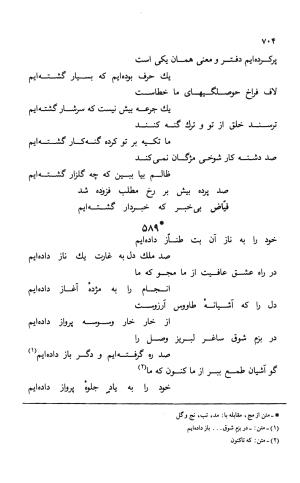 ۷۰۴
پرکرده‌ایم دفتر و معنی همان یکی است
یك حرف بوده‌ایم که بسیار گشته‌ایم
لاف فراخ حوصلگیهای ما خطاست
یك جرعه بیش نیست که سرشار گشته‌ایم
ترسند خلق از تو و ترك گنه کنند
ما تکیه بر تو کرده گنه‌کار گشته‌ایم
صد دشنه کار شوخی مژگان نمی‌کند
ظالم بیا ببین که چه گلزار گشته‌ایم
صد پرده بیش بر رخ مطلب فزوده شد
فیّاض بی‌خبر که خبردار گشته‌ایم
*۵۸۹
خود را به ناز آن بت طنّاز داده‌ایم
صد ملك دل به غارت یك ناز داده‌ایم
در راه عشق عافیت از ما مجو که ما
انجام را به مژدهٔ آغاز داده‌ایم
دل را که آشیانهٔ طاووس آرزوست
از خار خار وسوسه پرواز داده‌ایم
در بزم شوق ساغر لبریز وصل را
صد ره گرفته‌ایم و دگر باز داده‌ایم(۱)
گو آشیان طمع ببر از ما کنون که ما(۲)
خود را به یادِ جلوهٔ پرواز داده‌ایم
* ـ متن از مج، مقابله با: مد، تب، نج و گل
(۱) ـ متن: ـ در بزم شوق... باز داده‌ایم
(۲) ـ متن: که تاکنون